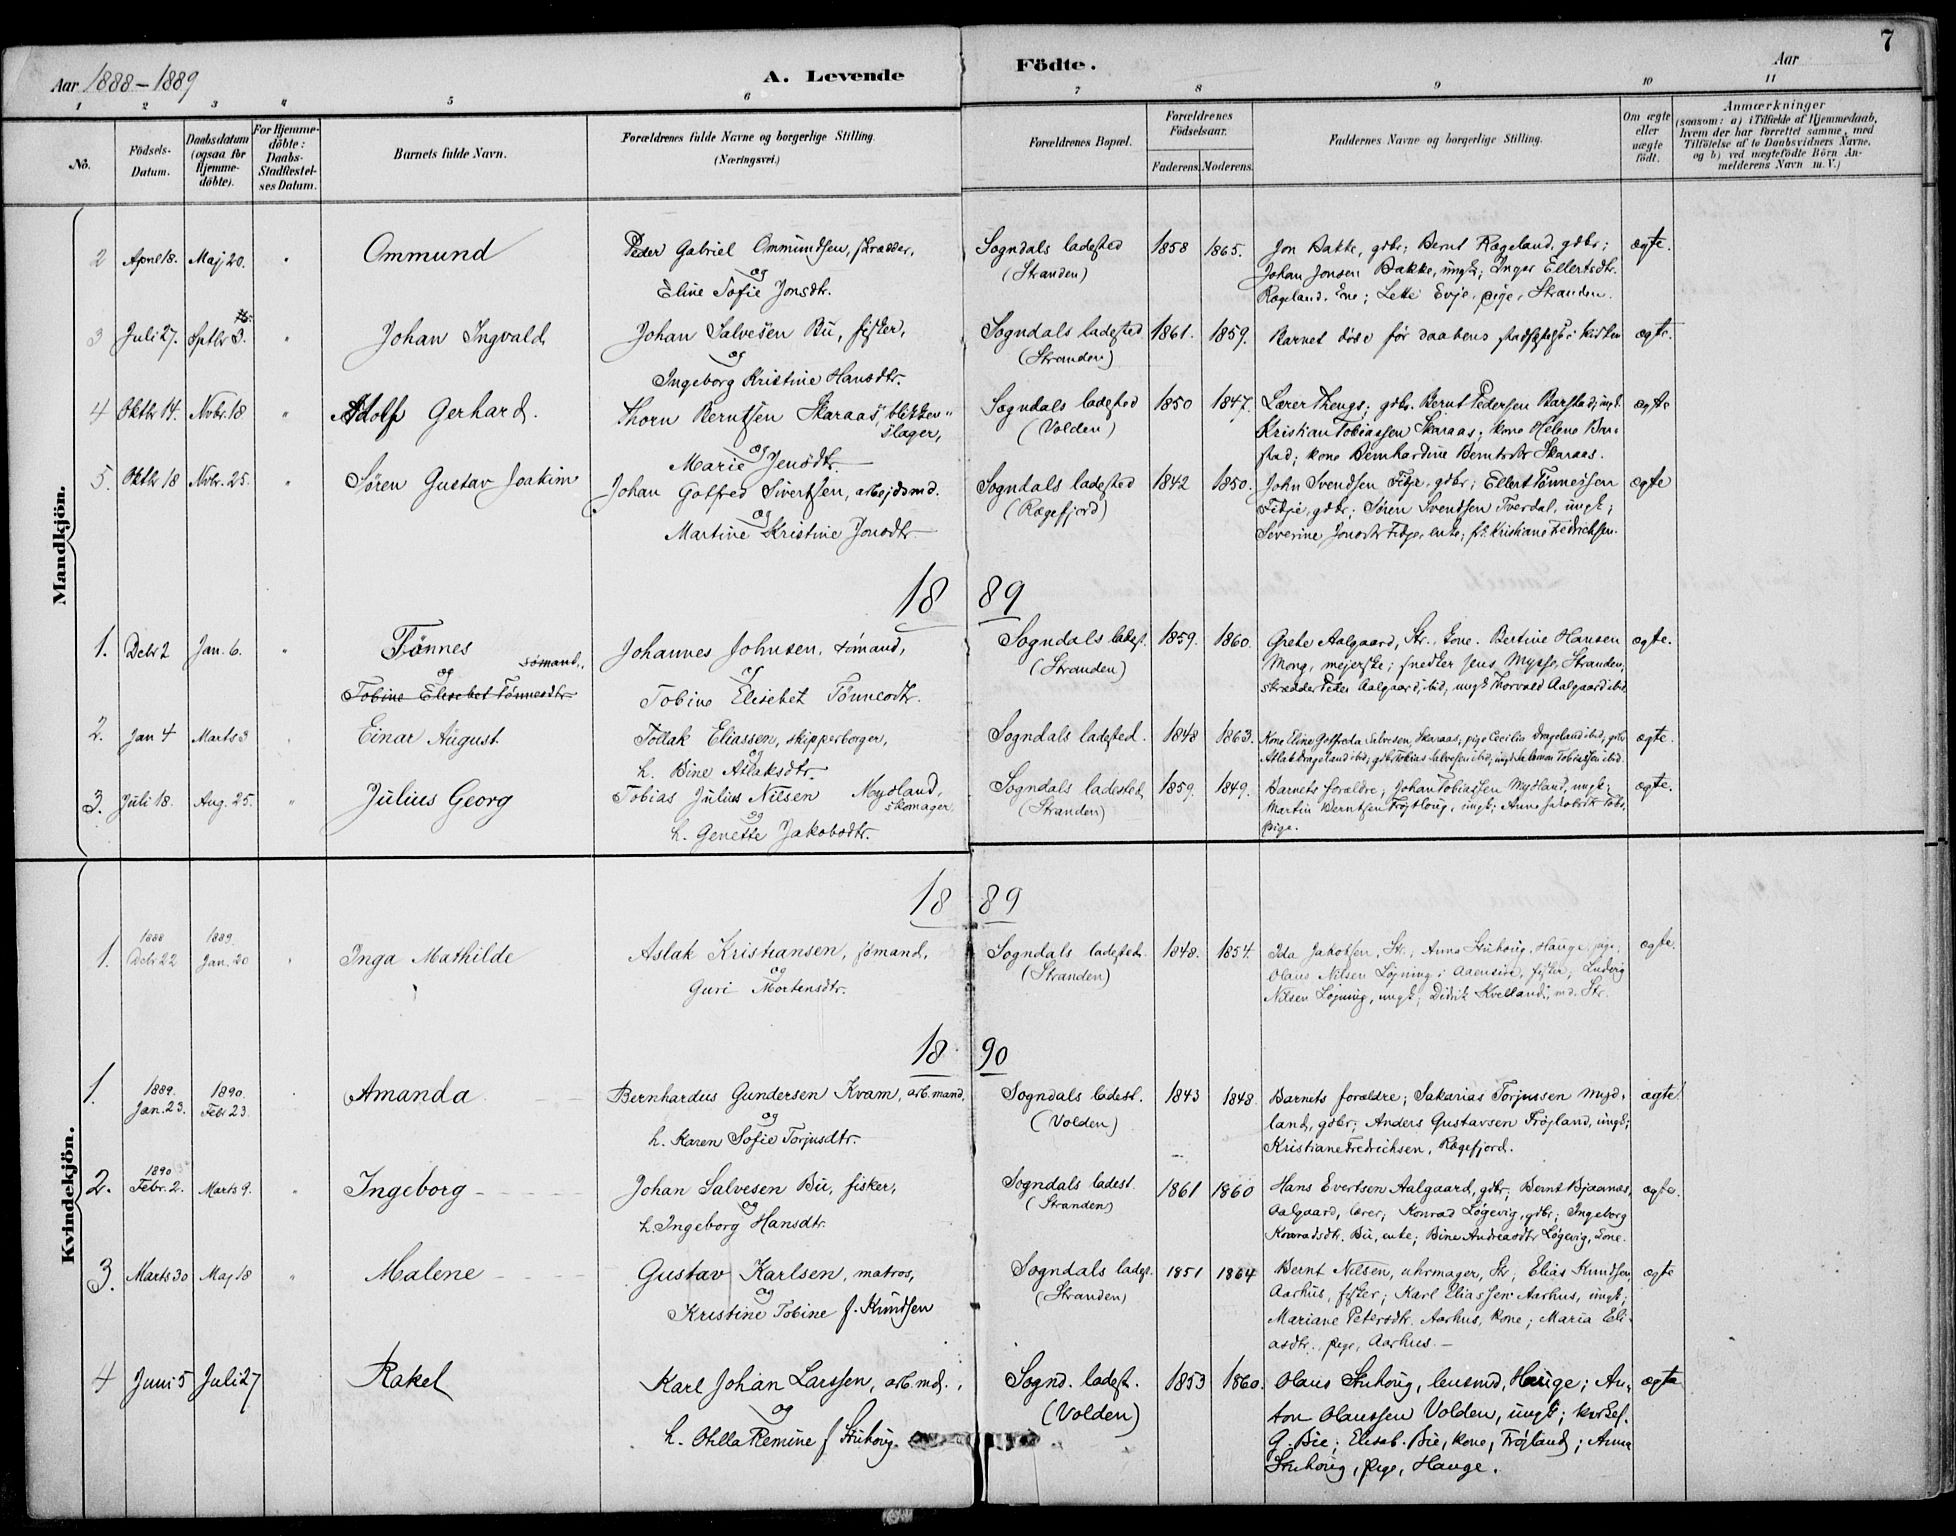 7
Aar 1888-1889
A. Levende
Födte.
Aar
1 2 3 " 5 6 7 8 9 10 11
No.
Födsels-Datum.
Daabsdatum (ogsaa for Hjemme-döbte).
For Hjemme-döbte: Daabs-Stadfæstel-ses Datum.
Barnets fulde Navn.
Forældrenes fulde Navne og borgerlige Stilling.
(Næringsvei.)
Forældrenes Bopæl.
Forældrenes Födselsaar.
Faderens. Moderens.
Faddernes Navne og borgerlige Stilling.
Om ægte eller uægte födt.
Anmærkninger
(saasom: a) i Tilfælde af Hjemmedaab,
hvem der har forrettet samme, med
Tilföielse af to Daabsvidners Navne,
og b) ved uægtefödte Börn An-
melderens Navn m. V.)
Mandkjön.
2 April 18. Maj 20. " Ommund Peder Gabriel Ommundsen, skrædder, Sogndals ladested 1858 1865. Jon Bakke, gdbr; Bernt Rægeland, gdbr; ægte.
og (Stranden) Johan Jonsen Bakke, ungk; Inger Ellertsdtr.
Eline Sofie Jonsdtr. Rægeland, Ene; Lette Evje, pige, Stranden.
3 Juli 27. Sptbr 3. " Johan Ingvald Johan Salvesen Bu, fisker, Sogndals ladested 1861. 1859. Barnet døde før daabens stadfæstelse i kirken ægte.
og (Stranden)
Ingeborg Kristine Hansdtr.
4 Oktbr 14. Novbr. 18 " Adolf Gerhard. Thorn Berntsen Skaraas, blikken- Sogndals ladested 1850 1847. Lærer Thengs; gdbr. Bernt Pedersen Barstad; ungk. ægte
slager, (Volden) Kristian Tobiassen Skaraas; kone Helene Bar-
og stad; kone Bernhardine Berntsdtr Skaraas.
Marie Jensdtr.
5. Oktbr 18 Novbr. 25. " Søren Gustav Joakim Johan Gotfred Sivertsen, arbejdsmd. Sogndals ladested 1842 1850. John Svendsen Fitje, gdbr; Ellert Tønnessen ægte
og (Rægefjord) Fitje, gdbr; Søren Svendsen Tverdal, ungk;
Martine Kristine Jonsdtr Severine Jonsdtr Fitje, enke; fr. Kristiane Fredrichsen.
18 89
1. Dcbr 2 Jan. 6. " Tønnes Johannes Johnsen, sømand, Sogndals ladest. 1859. 1860. Grete Aalgaard, Str. kone. Bertine Hansen ægte.
sømand, og (Stranden) Mong, mejerske; snedker Jens Mysse, Stranden,
og
Tobine Elisebet Tønnesdtr Tobine Elisebet Tønnesdtr. skrædder Peter Aalgaard, ibid, ungk Thorvald Aalgaard ibid
2. Jan 4 Marts 3 Einar August Tollak Eliassen, skipperborger, Sogndals ladested. 1848 1863. Kone Eline Gotfreda Salvesen, Skaraas; pige Cecilia Drageland ibid; gdbr ægte.
og Atlak Drageland ibid; gdbr Tobias Salvesen ibid; ungk Salomon Tobiassen ibid.
h. Bine Atlaksdtr.
3. Juli 18. Aug. 25. " Julius Georg Tobias Julius Nilsen Mydland, Sogndals ladested 1859. 1849. Barnets forældre; Johan Tobiassen Mydland, ungk; ægte.
skomager (Stranden) Martin Berntsen ungk;
og pige.
h. Genette Jakobsdtr.
Kvindekjön.
18 89
1. 1888 Dcbr 22 1889. Jan. 20 " Inga Mathilde Aslak Kristiansen, sømand, Sogndals ladested. 1848. 1854. Ida Jakobsen, Str.; Anna Stuhoug, Hauge, pige; ægte.
og (Stranden) Olaus Nilsen Løjning i Aaensire, fisker; Ludvig
Guri Mortensdtr. Nilsen Løjning, ungk; Didrik Kvelland, md. Str.
18 90
1. 1889. Jan. 23. 1890. Febr 23 Amanda Bernhardus Gundersen Kvam, arb. mand, Sogndals ladest. 1843 1848. Barnets forældre; Sakarias Torjussen Myd- ægte.
og (Volden) land, gdbr; Anders Gustavsen Frøjland, ungk;
h. Karen Sofie Torjusdtr. Kristiane Fredrichsen, Rægefjord.
2. 1890 Febr. 2. Marts 9. " Ingeborg Johan Salvesen Bu, fisker, Sogndals ladest. 1861 1860 Hans Evertsen Aalgaard, gdbr; Bernt Bjaanæs, ægte.
og (Stranden) Aalgaard, lærer; Konrad Løgevig, gdbr; Ingeborg
h. Ingeborg Hansdtr. Konradsdtr. Bu, enke; Bine Andreasdtr Løgevig, kone.
3. Marts 30 Maj 18 " Malene Gustav Karlsen, matros, Sogndals ladest. 1851 1864 Bernt Nilsen, uhrmager, Str; Elias Knudsen, ægte
og (Stranden) Aarhus, fisker; Karl Eliassen Aarhus, ungk;
Kristine Tobine f. Knudsen Mariane Petersdtr. Aarhus, kone; Maria Eli-
asdtr., pige, Aarhus.
4 Juni 5 Juli 27 Rakel Karl Johan Larssen, arb. md., Sognd. ladest. 1853 1860. Olaus Stuhoug, lensmd, Hauge; An- ægte
og (Volden) ton Olaussen Volden, ungk; kirkes.
h. Olilla Remine f Stuhoug. G. Bie; Elisab. Bie, kone, Frøjland; Anna
Stuhoug, pige, Hauge.